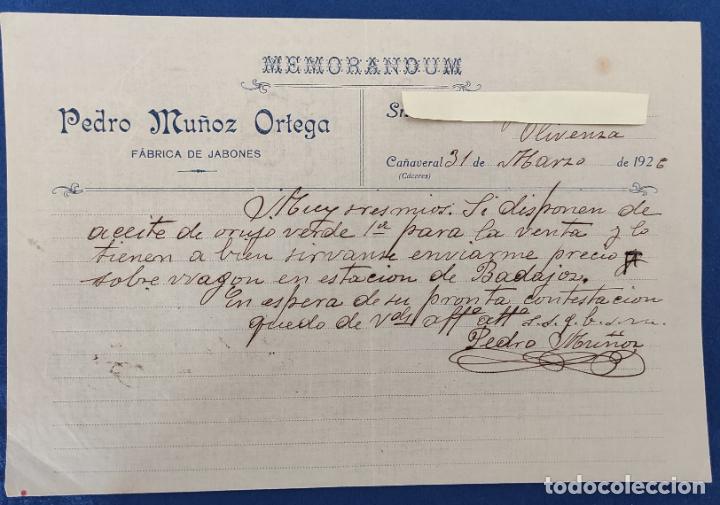 MEMORANDUM
Pedro Muñoz Ortega
FÁBRICA DE JABONES
Sr.
Olivenza
Cañaveral 31 de Marzo de 1926
(Cáceres)
Muy sres mios: Si disponen de
aceite de orujo verde 1ª para la venta y lo
tienen a bien sirvanse enviarme precio
sobre wagon en estacion de Badajoz.
En espera de su pronta contestacion
quedo de Vds affº attº s.s.q.b.s.m.
Pedro Muñoz
todocoleccion
todocoleccion.net